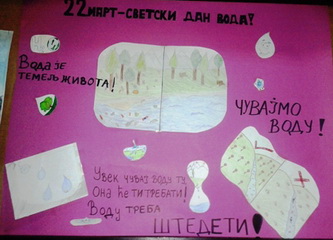 22 МАРТ-СВЕТСКИ ДАН ВОДА!
Вода је
ТЕМЕЉ ЖИВОТА!
ЧУВАЈМО
ВОДУ!
Увек чувај воду ту
Она ће ти требати!
Воду треба
ШТЕДЕТИ!